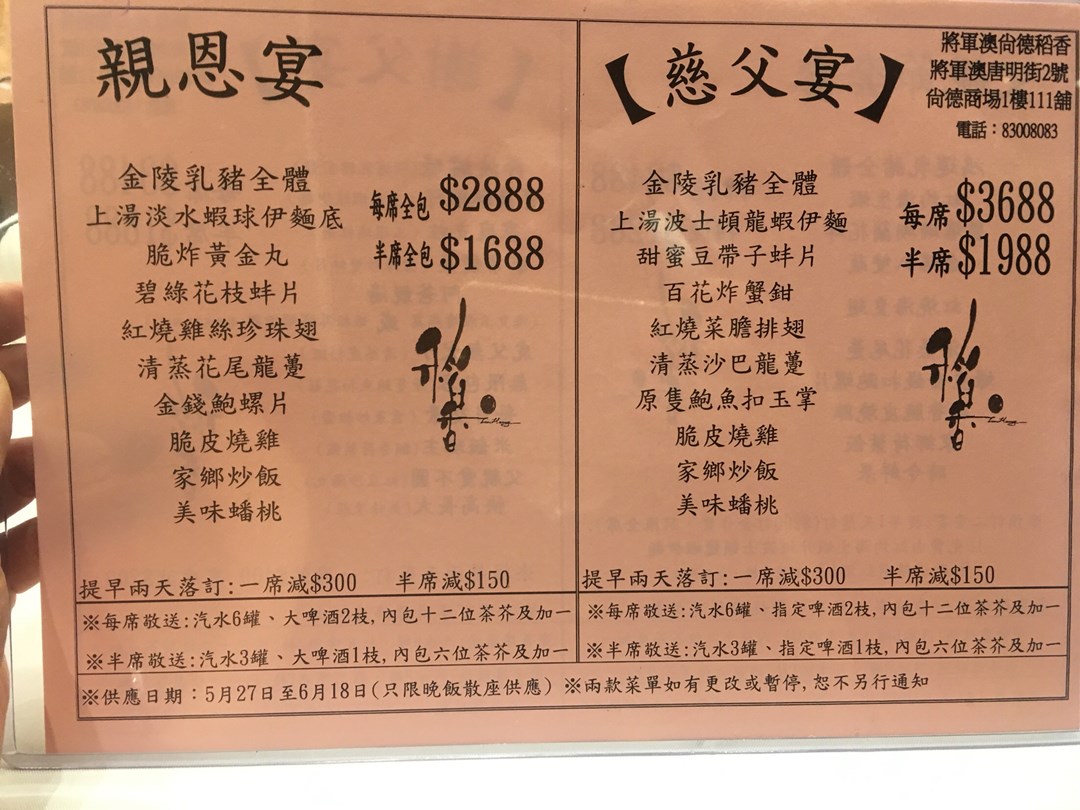 親恩宴
金陵乳豬全體
上湯淡水蝦球伊麵底
脆炸黃金丸
碧綠花枝蚌片
紅燒雞絲珍珠翅
清蒸花尾龍躉
金錢鮑螺片
脆皮燒雞
家鄉炒飯
美味蟠桃
每席全包 $2888
半席全包 $1688
稻香
提早兩天落訂:一席減$300 半席減$150
※每席敬送:汽水6罐、大啤酒2枝,內包十二位茶芥及加一
※半席敬送:汽水3罐、大啤酒1枝,內包六位茶芥及加一
【慈父宴】
將軍澳尚德稻香
將軍澳唐明街2號
尚德商場1樓111舖
電話:83008083
金陵乳豬全體
上湯波士頓龍蝦伊麵
甜蜜豆帶子蚌片
百花炸蟹鉗
紅燒菜膽排翅
清蒸沙巴龍躉
原隻鮑魚扣玉掌
脆皮燒雞
家鄉炒飯
美味蟠桃
每席 $3688
半席 $1988
稻香
提早兩天落訂:一席減$300 半席減$150
※每席敬送:汽水6罐、指定啤酒2枝,內包十二位茶芥及加一
※半席敬送:汽水3罐、指定啤酒1枝,內包六位茶芥及加一
※供應日期:5月27日至6月18日(只限晚飯散座供應) ※兩款菜單如有更改或暫停,恕不另行通知